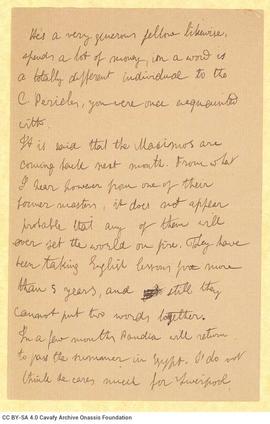 He's a very generous fellow likewise,
spends a lot of money, in a word is
a totally different individual to the
C. Pericles, you were once acquainted
with.
It is said that the Maximos are
coming back next month. From what
I hear however from one of their
former masters, it does not appear
probable that any of them will
ever set the world on fire. They have
been taking English lessons for more
than 5 years, and still they
cannot put two words together.
In a few months Pandia will return
to pass the summer in Egypt. I do not
think he cares much for Liverpool,
CC BY-SA 4.0 Cavafy Archive Onassis Foundation